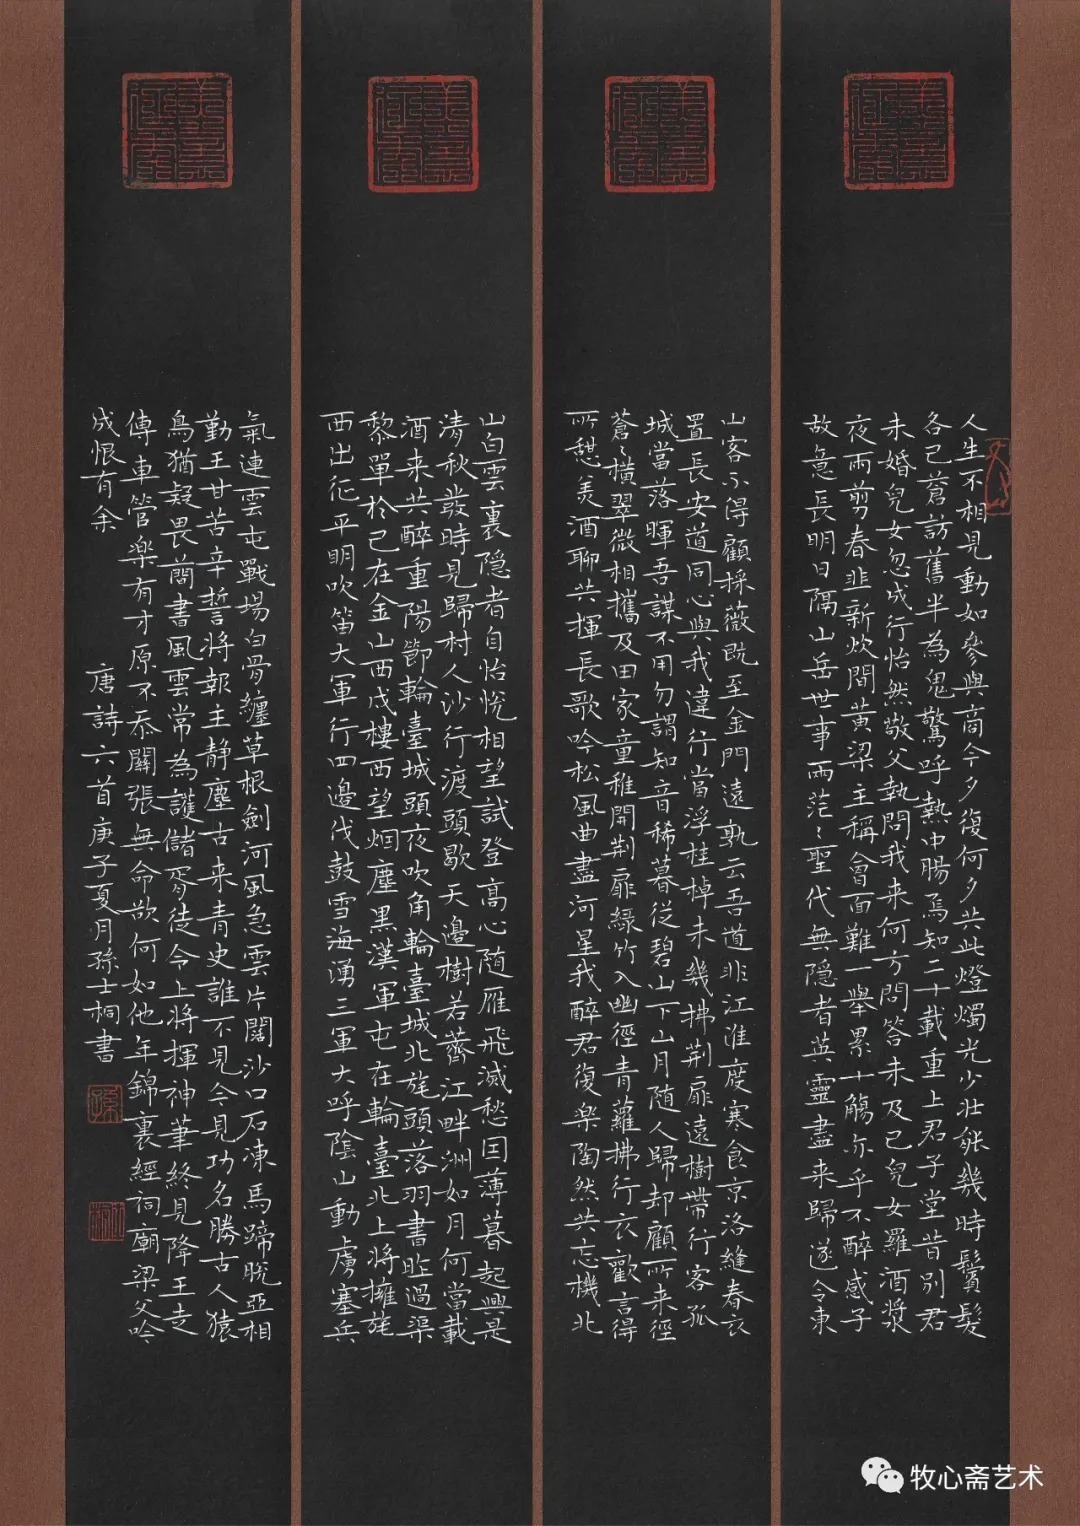 人生不相見動如參與商今夕復何夕共此燈燭光少壯能幾時鬢髮
各已蒼訪舊半為鬼驚呼熱中腸焉知二十載重上君子堂昔別君
未婚兒女忽成行怡然敬父執問我来何方問答未及已兒女羅酒漿
夜雨剪春韭新炊間黃粱主稱會面難一舉累十觴亦乎不醉感子
故意長明日隔山岳世事兩茫〻聖代無隱者英靈盡来歸遂令東
山客不得顧採薇既至金門遠孰云吾道非江淮度寒食京洛縫春衣
置長安道同心與我違行當浮桂棹未幾拂荊扉遠樹帶行客孤
城當落暉吾謀不用勿謂知音稀暮從碧山下山月隨人歸却顧所来徑
蒼〻橫翠微相攜及田家童稚開荊扉綠竹入幽徑青蘿拂行衣歡言得
所憩美酒聊共揮長歌吟松風曲盡河星我醉君復樂陶然共忘機北
山白雲裏隱者自怡悅相望試登高心隨雁飛滅愁因薄暮起興是
清秋發時見歸村人沙行渡頭歇天邊樹若薺江畔洲如月何當載
酒来共醉重陽節輪臺城頭夜吹角輪臺城北旄頭落羽書昨過渠
黎單於已在金山西戍樓西望烟塵黑漢軍屯在輪臺北上將擁旄
西出征平明吹笛大軍行四邊伐鼓雪海湧三軍大呼陰山動虜塞兵
氣連雲屯戰場白骨纏草根劍河風急雲片闊沙口石凍馬蹄脫亞相
勤王甘苦辛誓將報主靜塵古来青史誰不見今見功名勝古人猿
鳥猶疑畏簡書風雲常為護儲胥徒令上將揮神筆終見降王走
傳車管樂有才原不忝關張無命欲何如他年錦裏經祠廟梁父吟
成恨有余
唐詩六首庚子夏月孫士桐書
牧心斋艺术